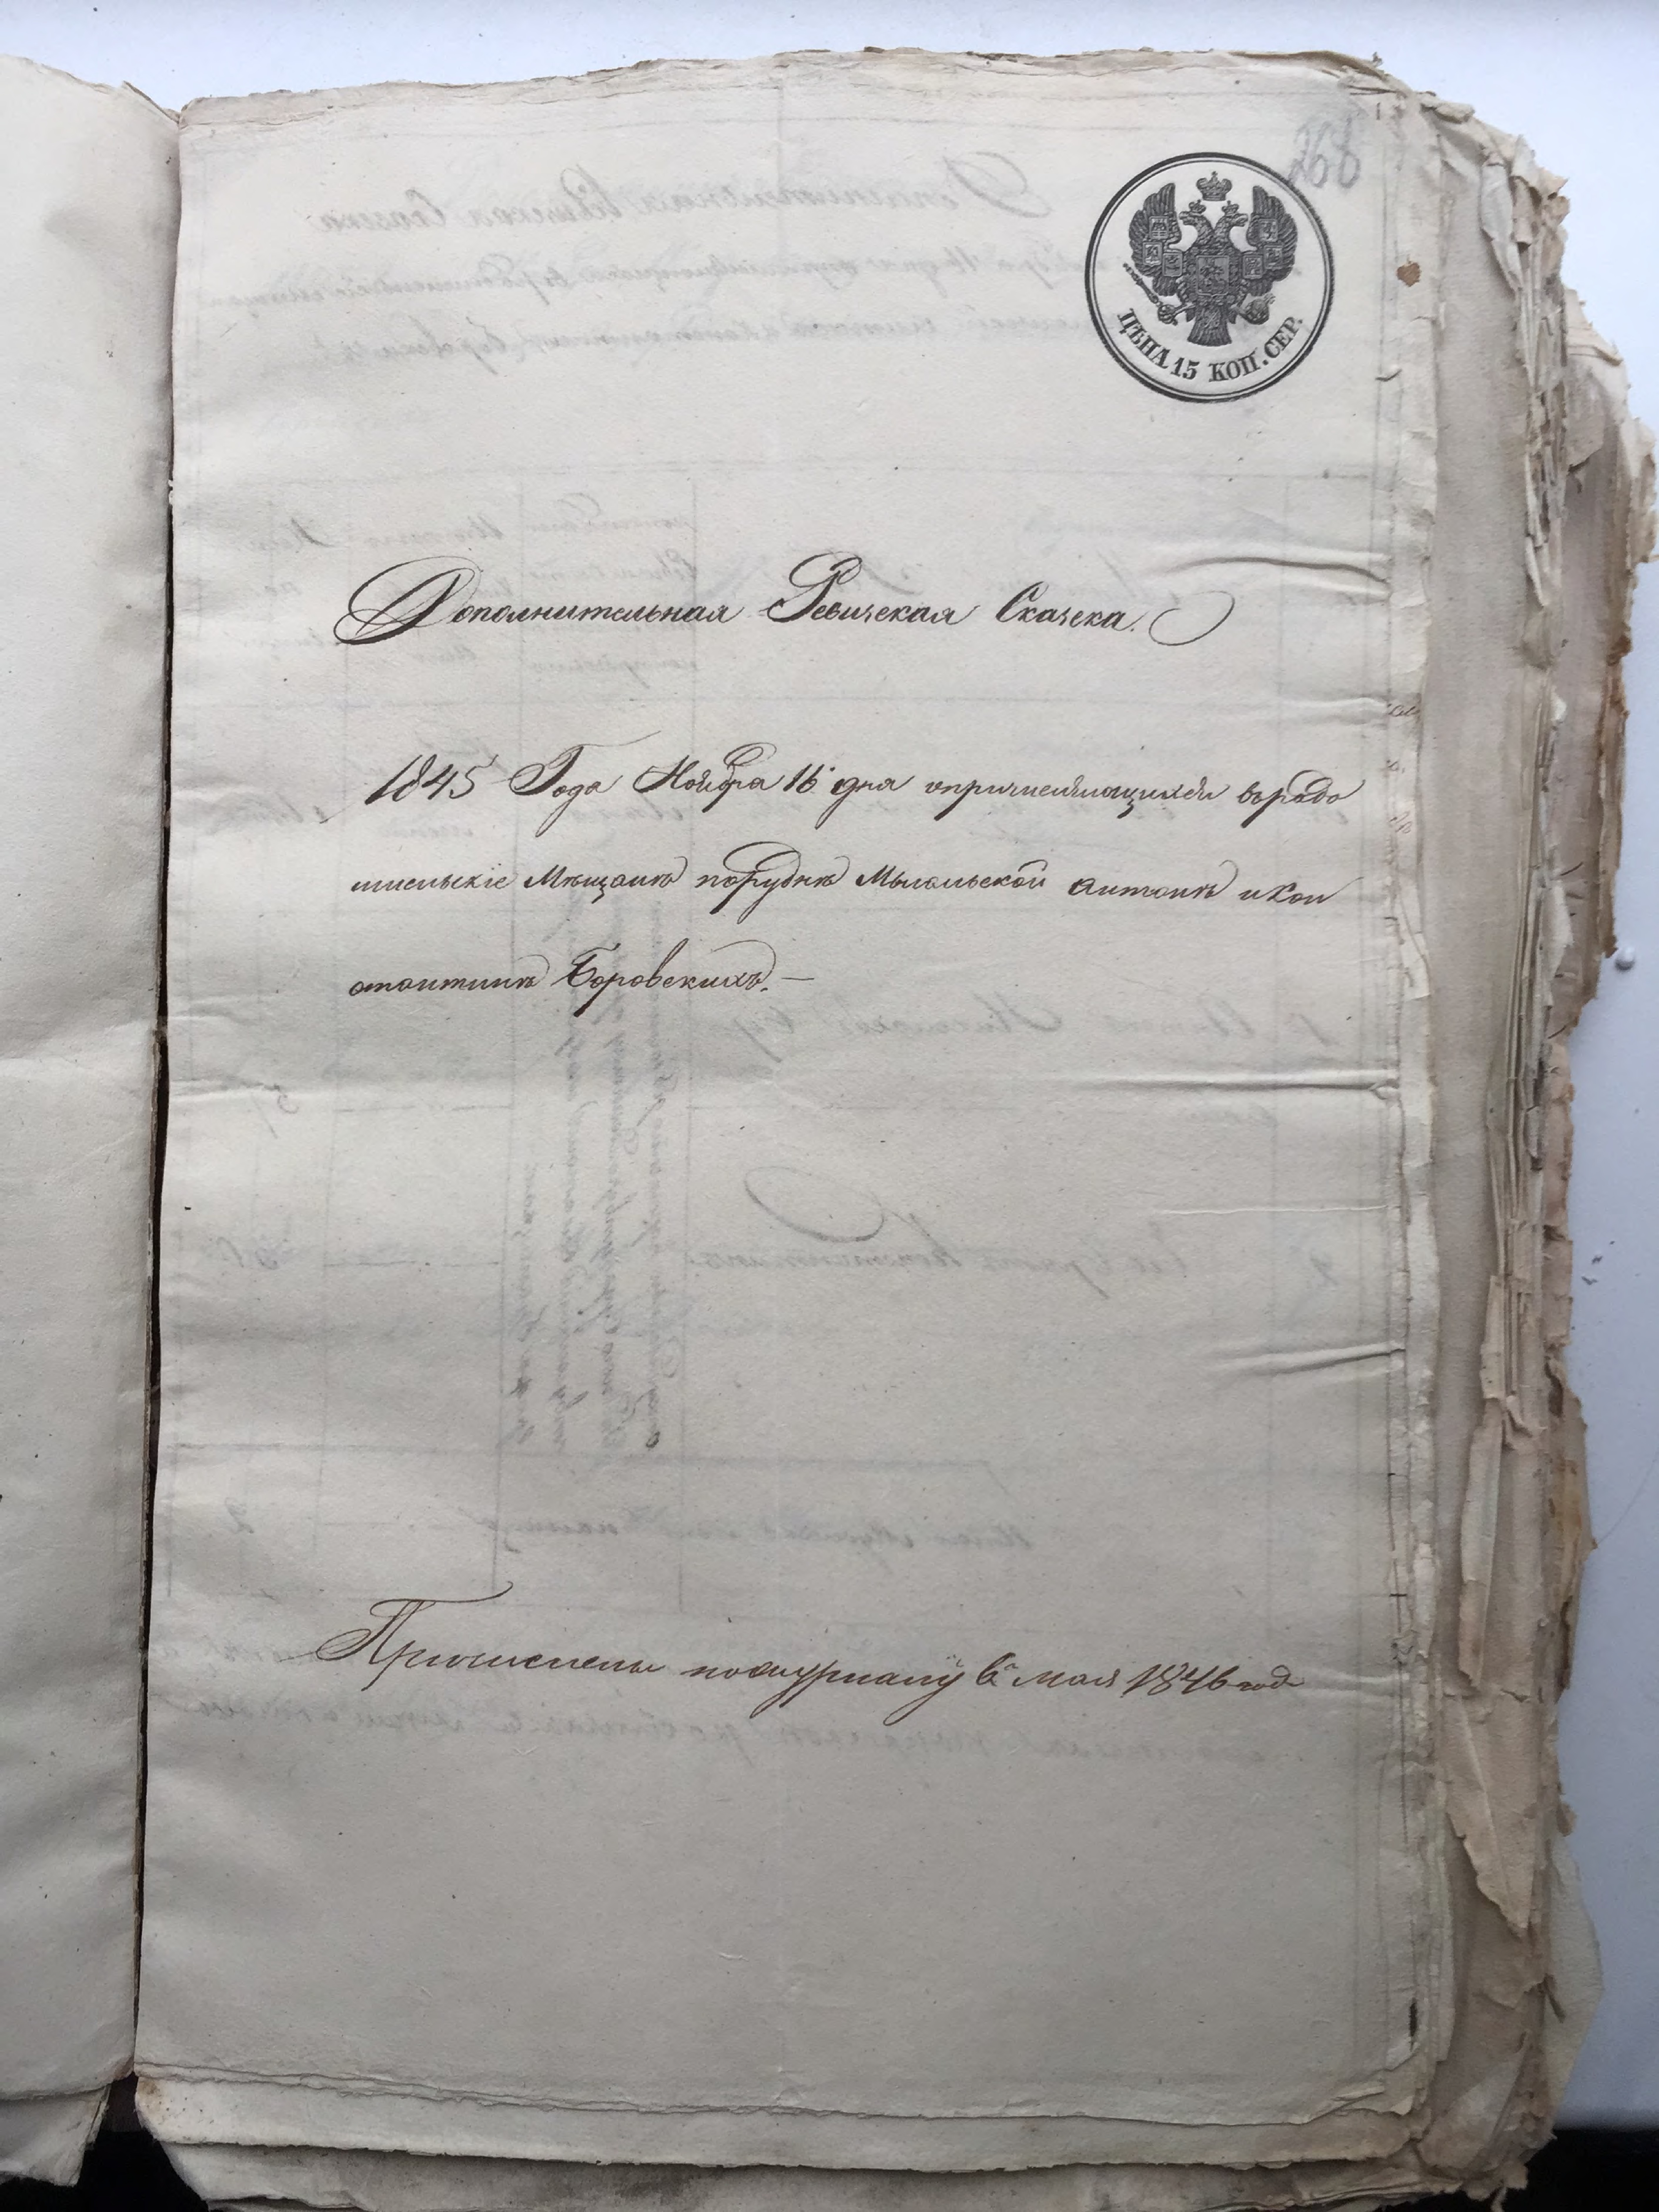 268
ЦѢНА 15 КОП. СЕР.
Дополнительная Ревизская Сказка.
1845 Года Ноября 16 дня опричисляющихся въ радо
мысльскіе Мѣщане порудне Мыгальской Антонѣ и Кон
стантинѣ Боровскихъ. —
Причислены по журналу 6 мая 1846 года